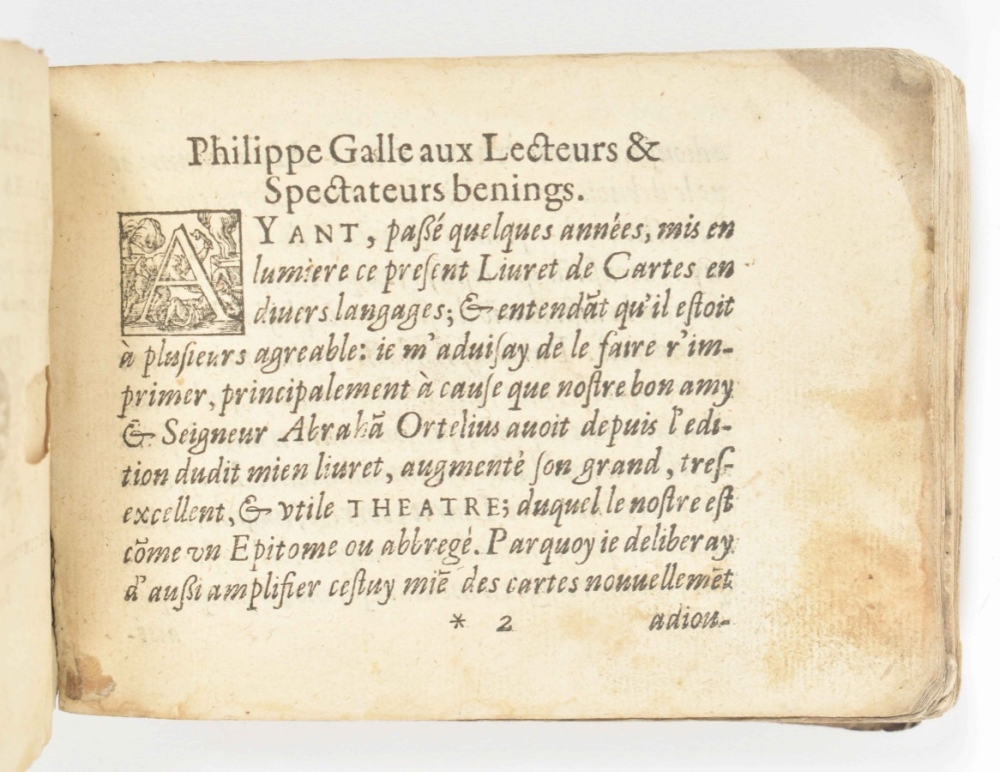 Philippe Galle aux Lecteurs &
Spectateurs benings.
AYANT, paßé quelques années, mis en
lumiere ce preſent Liuret de Cartes en
diuers langages; & entendãt qu'il eſtoit
à pluſieurs agreable: ie m'aduiſay de le faire r'im-
primer, principalement à cauſe que noſtre bon amy
& Seigneur Abrahã Ortelius auoit depuis l'edi-
tion dudit mien liuret, augmenté ſon grand, treſ-
excellent, & vtile THEATRE; duquel le noſtre eſt
cõme vn Epitome ou abbregé. Parquoy ie deliberay
d'außi amplifier ceſtuy miẽ des cartes nouuellemẽt
* 2 adiou-